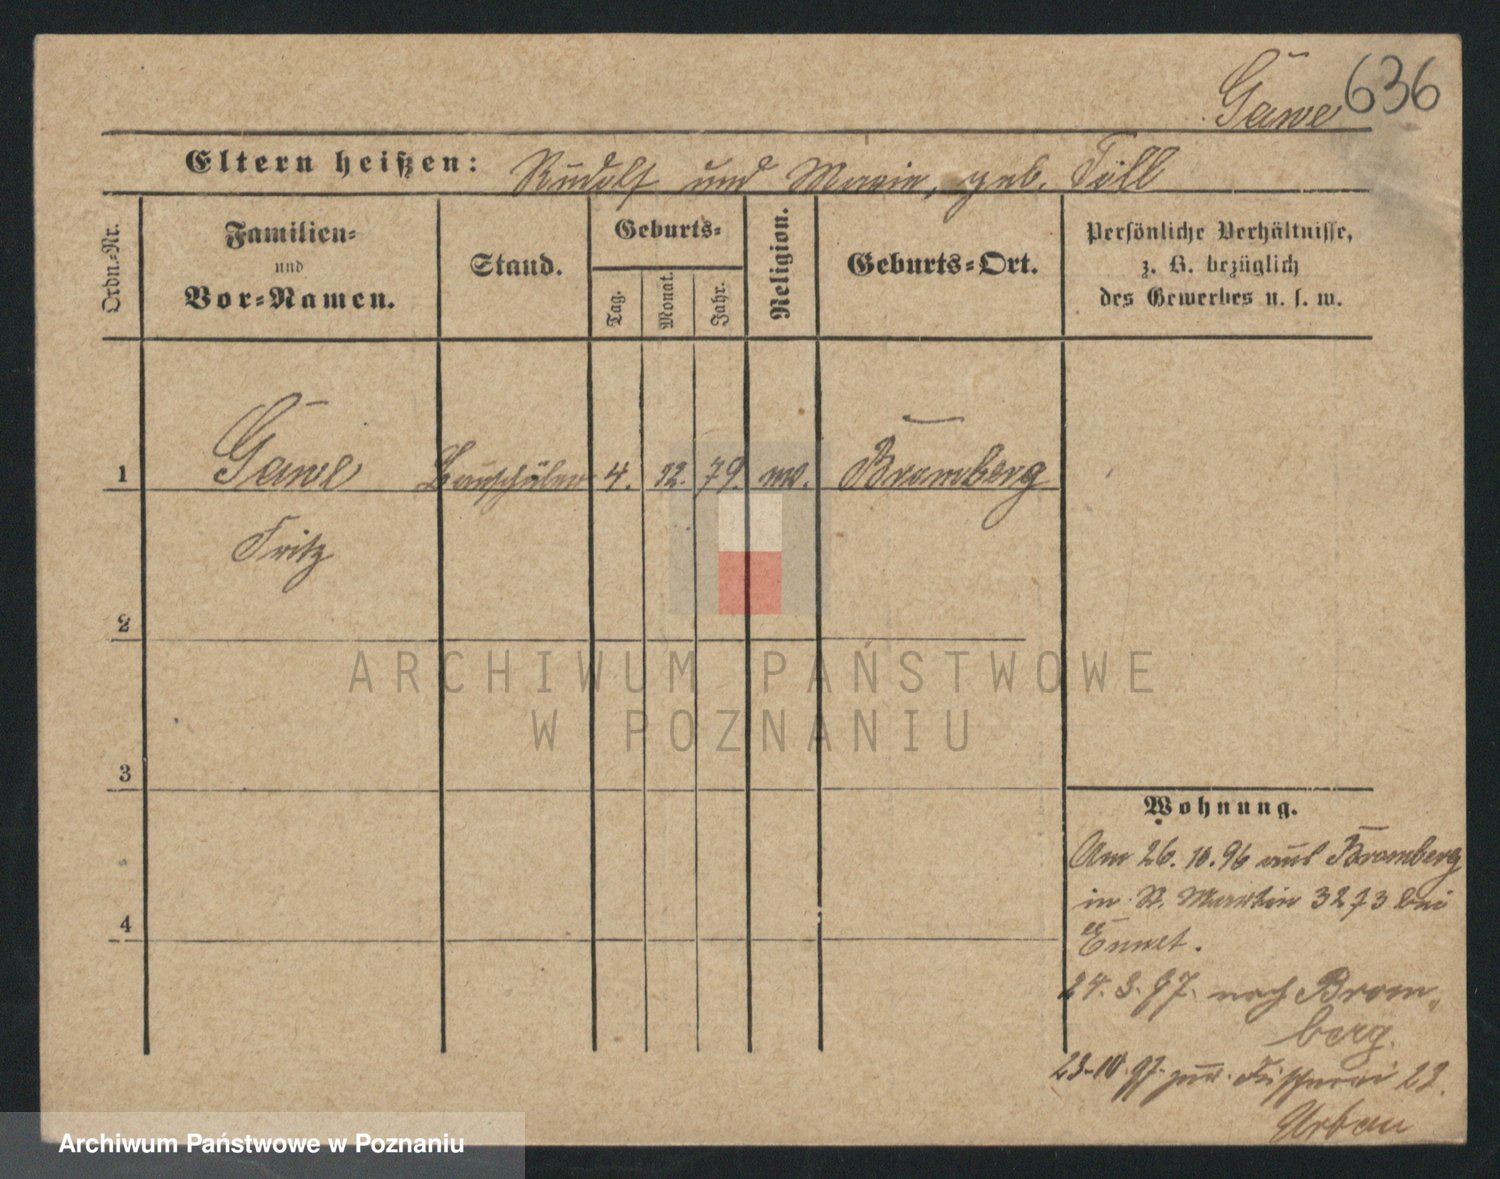 Gawe 636
Eltern heißen: Rudolf und Marie, geb. Töll
Ordn.-Nr.
Familien-
und
Vor-Namen.
Stand.
Geburts-
Tag.
Monat.
Jahr.
Religion.
Geburts-Ort.
Persönliche Verhältnisse,
z. B. bezüglich
des Gewerbes u. s. w.
1 Gawe Bauschüler 4. 12. 79. ev. Bromberg
Fritz
2
3
4
Wohnung.
Am 26. 10. 96 aus Bromberg
in St. Martin bei
24. 3. 97. nach Brom-
berg.
23. 10. 97. zur. Fischerei
Urban
ARCHIWUM PAŃSTWOWE
W POZNANIU
Archiwum Państwowe w Poznaniu